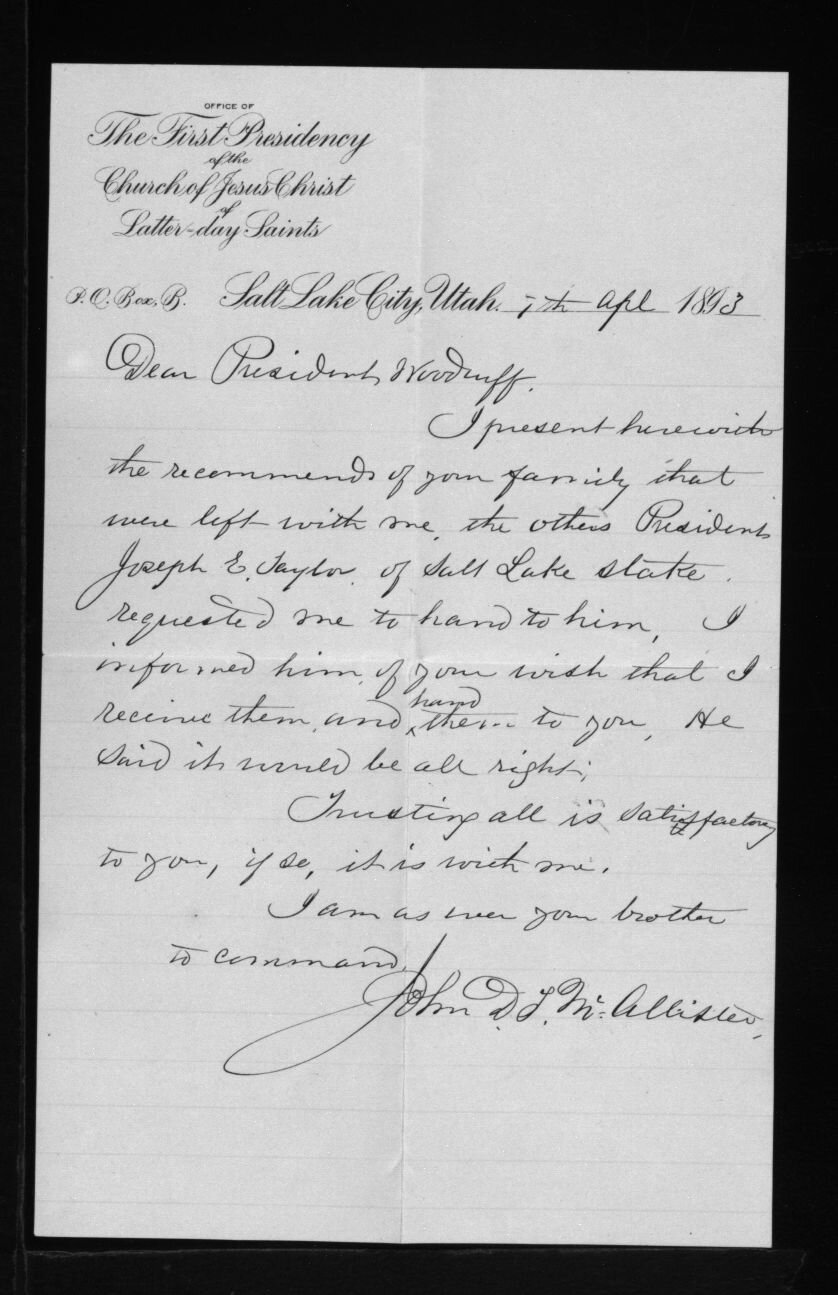 OFFICE OF
The First Presidency
of the
Church of Jesus Christ
of
Latter-day Saints
P.O. Box, B. Salt Lake City, Utah. 7th Apl 1893
Dear President Woodruff.
I present herewith
the recommends of your family that
were left with me, the others President
Joseph E. Taylor, of Salt Lake stake.
requested me to hand to him, I
informed him, of your wish that I
receive them, and hand them to you, He
said it would be all right;
Trusting all is satisffactory
to you, if so, it is with me.
I am as ever your brother
to command,
John D. T. McAllister,